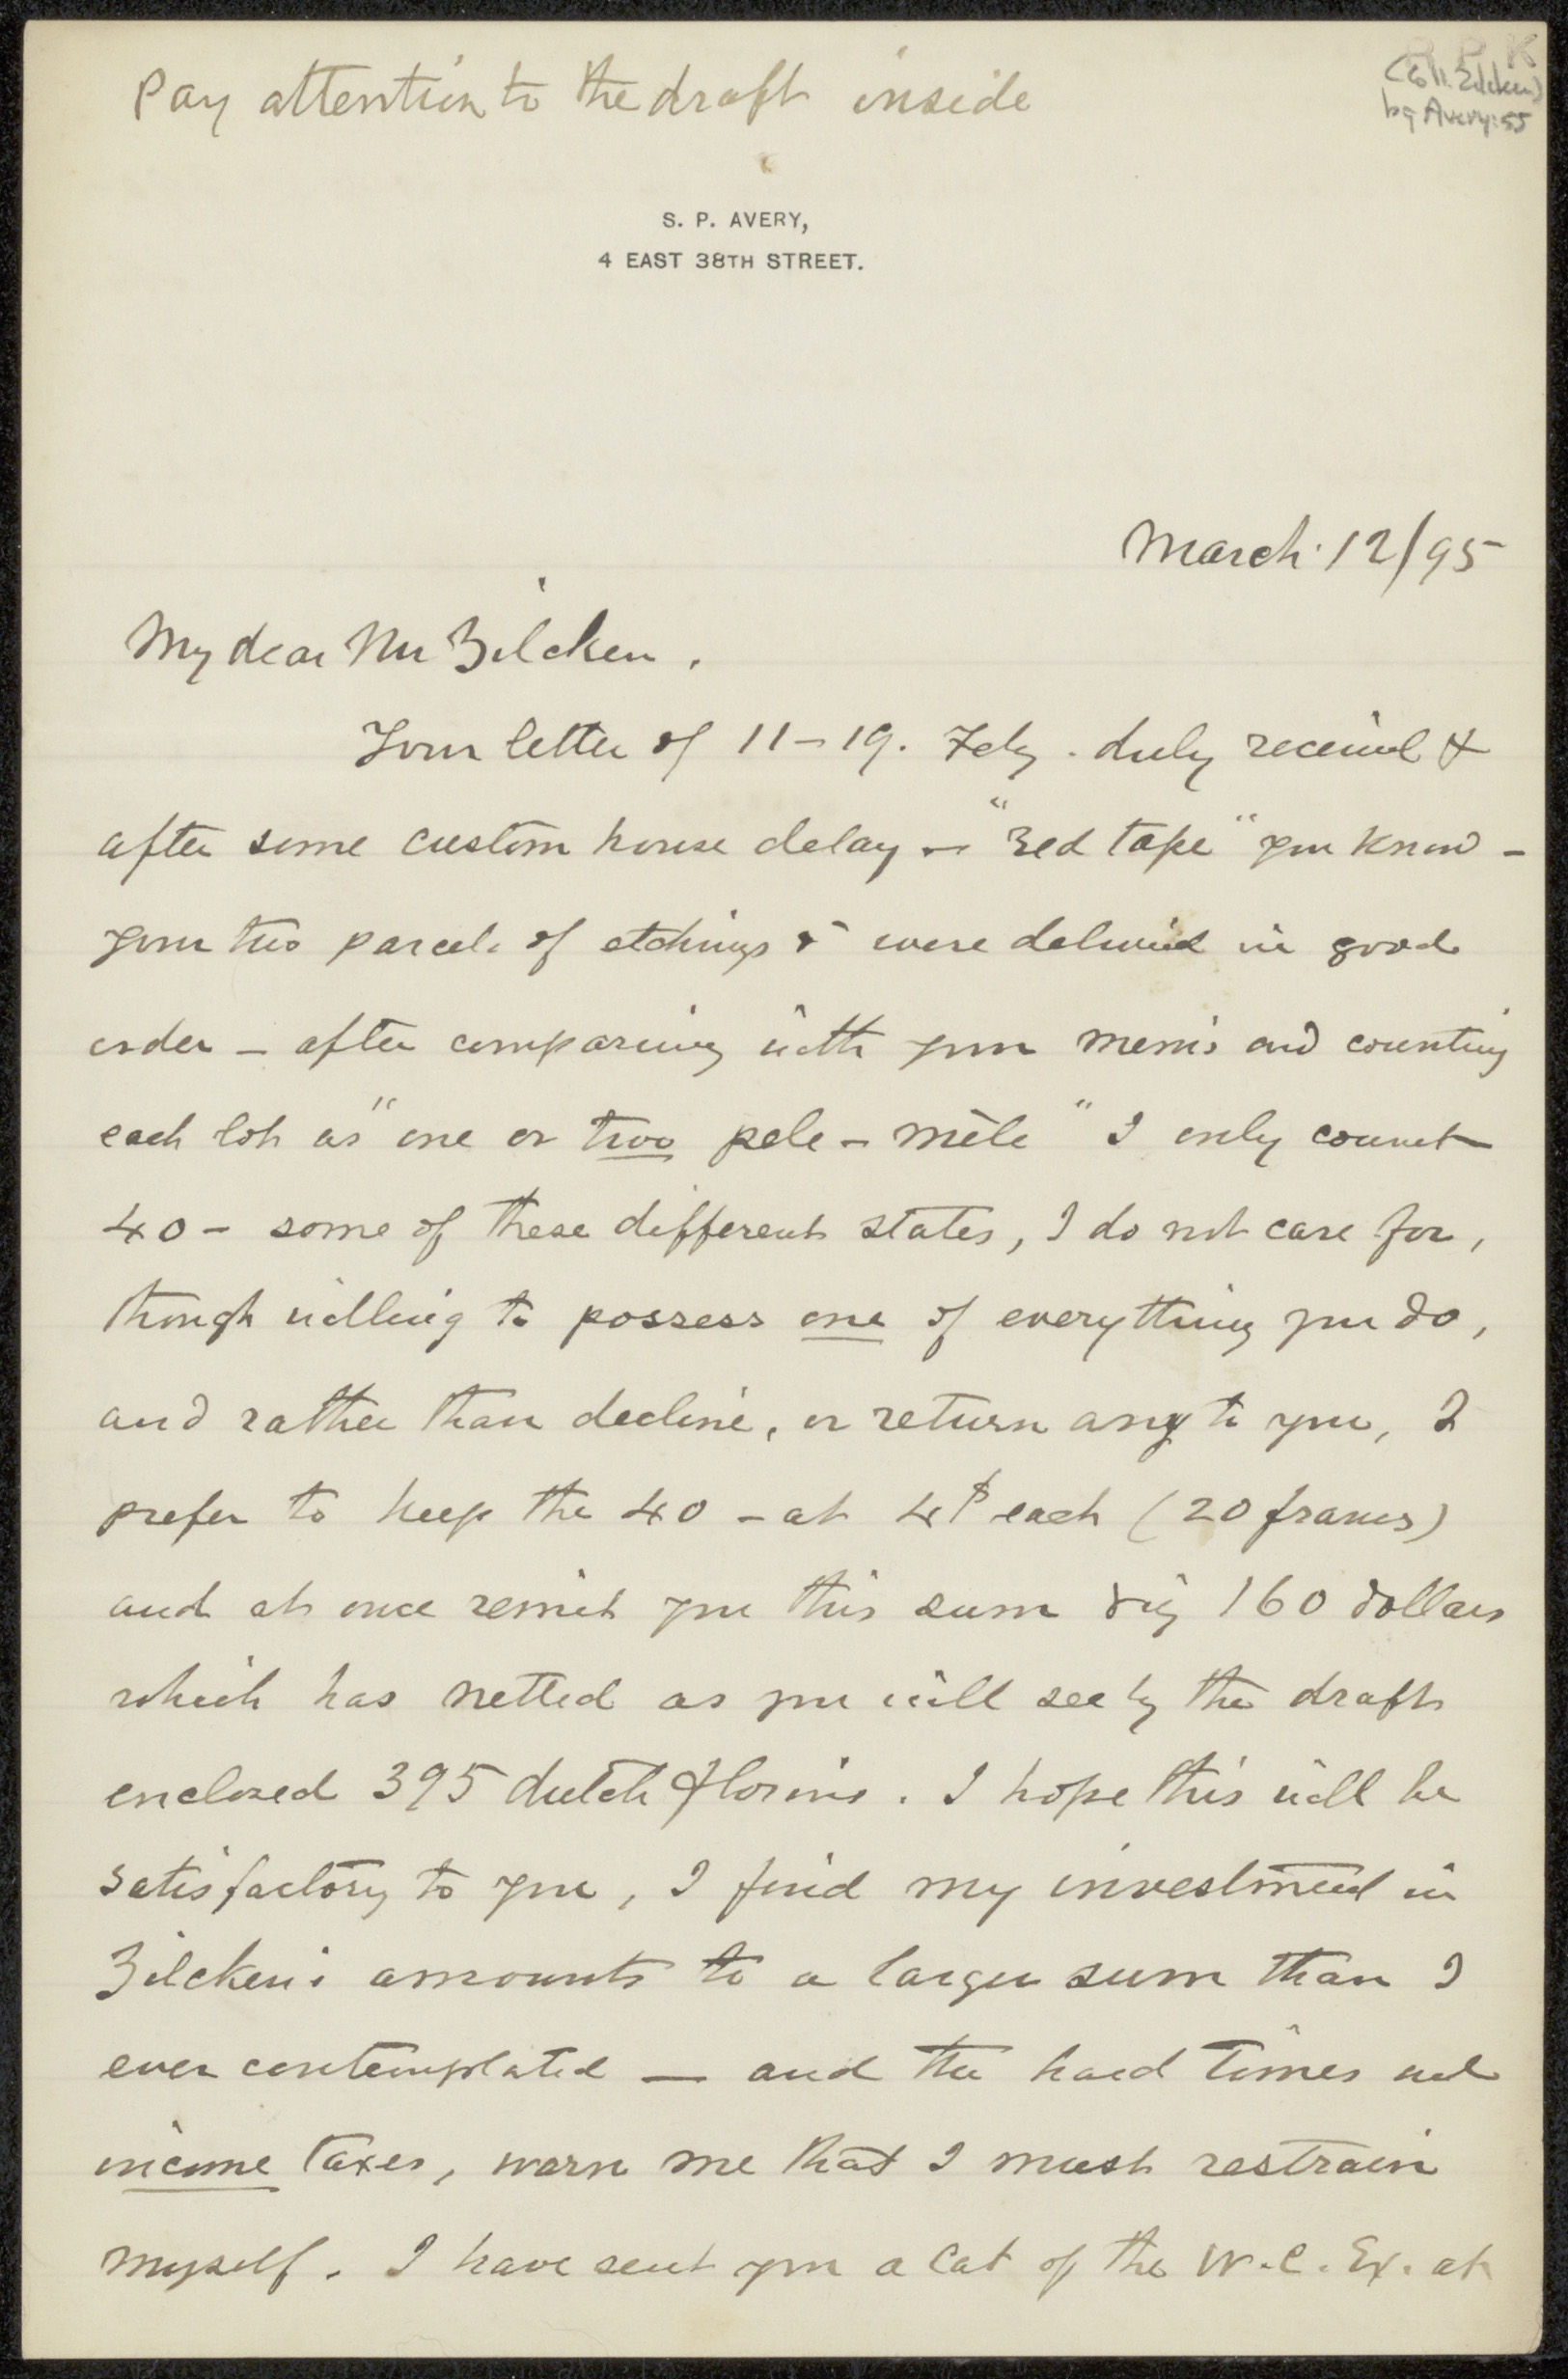 Pay attention to the draft inside
R P K
(Coll. Zilcken)
by Avery: 55
S. P. AVERY,
4 EAST 38TH STREET.
March 12/95
My dear Mr Zilcken.
Your letter of 11-19. Feby. duly received &
after some custom house delay - "Red tape" you know -
your two parcels of etchings & were delivered in good
order - after comparing with your memo's and counting
each lot as "one or two pele-mèle" I only count
40 - some of these different states, I do not care for,
though willing to possess one of everything you do,
and rather than decline, or return any to you, I
prefer to keep the 40 - at 4$ each (20 francs)
and at once remit you this sum viz 160 dollars
which has netted as you will see by the draft
enclosed 395 dutch florins. I hope this will be
satisfactory to you, I find my investment in
Zilckens amounts to a larger sum than I
ever contemplated — and the hard times and
income taxes, warn me that I must restrain
myself. I have sent you a Cat of the W.C. Ex. at